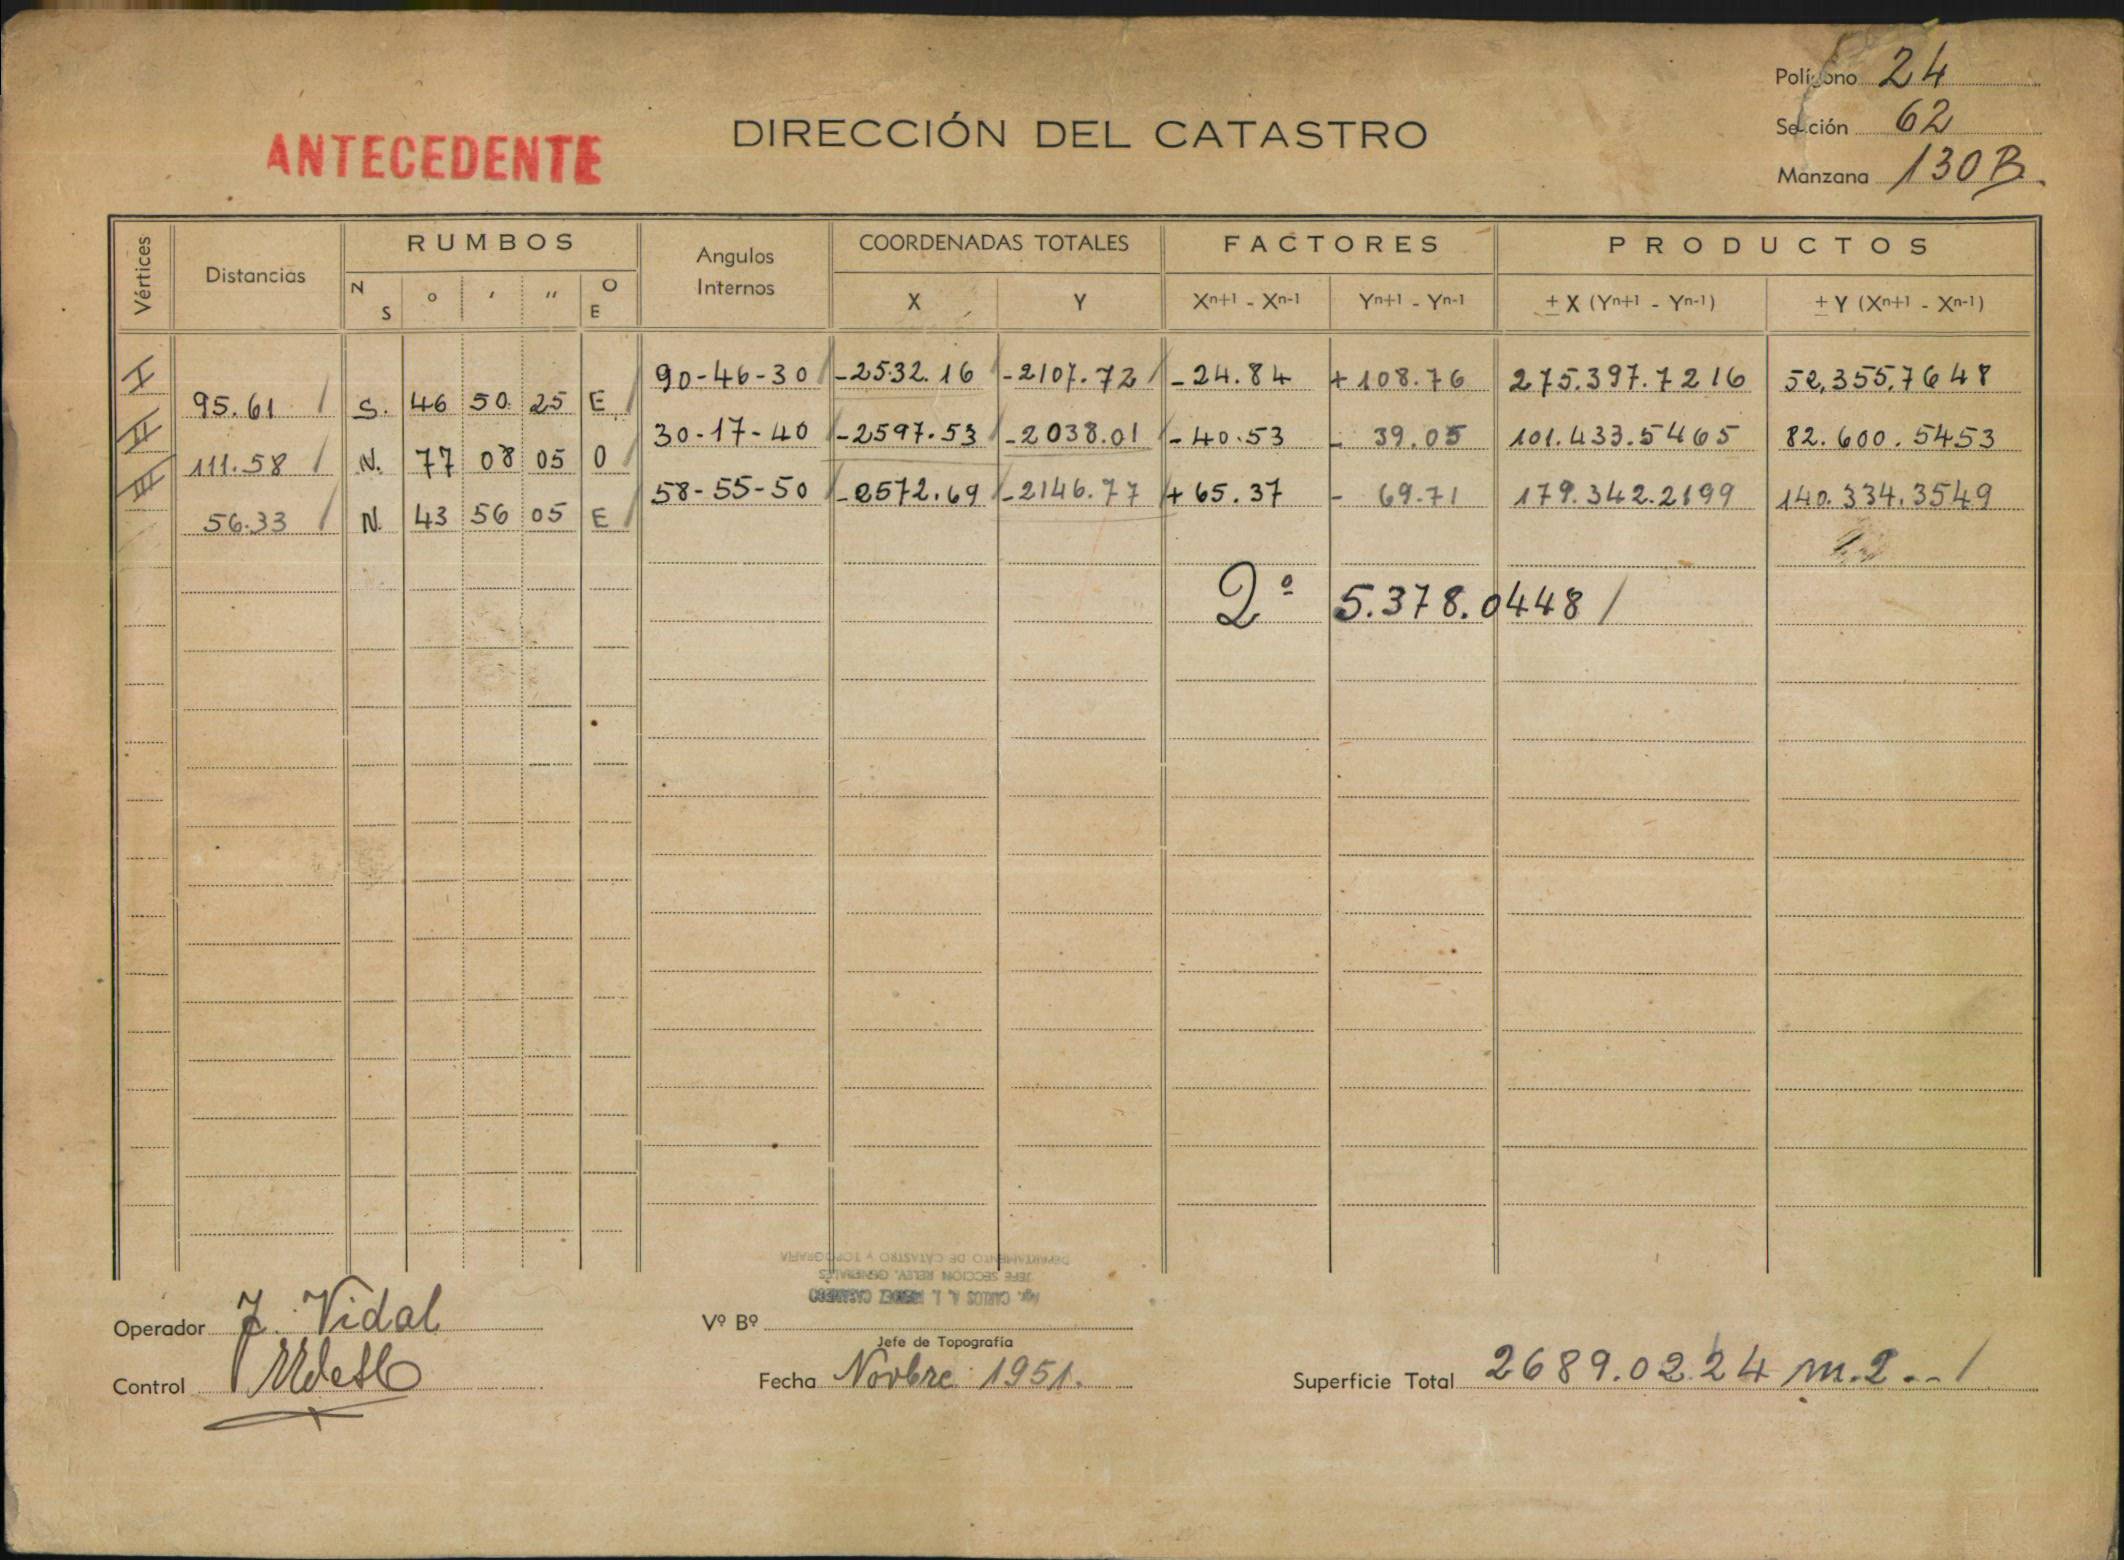 Polígono 24
Sección 62
Manzana 130 B.
ANTECEDENTE
DIRECCIÓN DEL CATASTRO
Vértices Distancias RUMBOS Angulos Internos COORDENADAS TOTALES FACTORES PRODUCTOS
N S ° ' " O E X Y Xn+1 - Xn-1 Yn+1 - Yn-1 ± X (Yn+1 - Yn-1) ± Y (Xn+1 - Xn-1)
I 90-46-30 -2532.16 -2107.72 -24.84 +108.76 275.397.7216 52,355,7648
95.61 S. 46 50 25 E
II 30-17-40 -2597.53 -2038.01 -40.53 - 39.05 101.433.5465 82.600.5453
111.58 N. 77 08 05 O
III 58-55-50 -2572.69 -2146.77 +65.37 - 69.71 179.342.2199 140.334.3549
56.33 N. 43 56 05 E
2º 5.378.0448
DEPARTAMENTO DE CATASTRO Y TOPOGRAFIA
JEFE SECCION RELEV. GENERALES
Agr. CARLOS A. J. MENDEZ
Operador J. Vidal
Vº Bº
Jefe de Topografía
Control
Fecha Novbre 1951.
Superficie Total 2689.0224 m.2